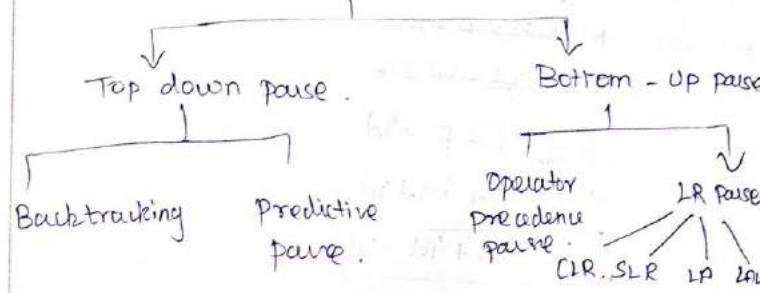 Top down parse.
Bottom - up parse
Backtracking
Predictive
parse.
Operator
precedence
parse.
LR parse
CLR. SLR LA LAL